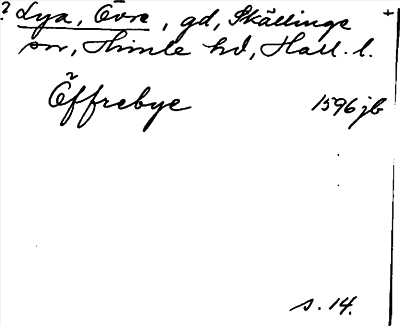 ? Lya, Övre, gd, Skällinge +
sn, Himle hd, Hall. l.
Öffrebye 1596 jb
s. 14.